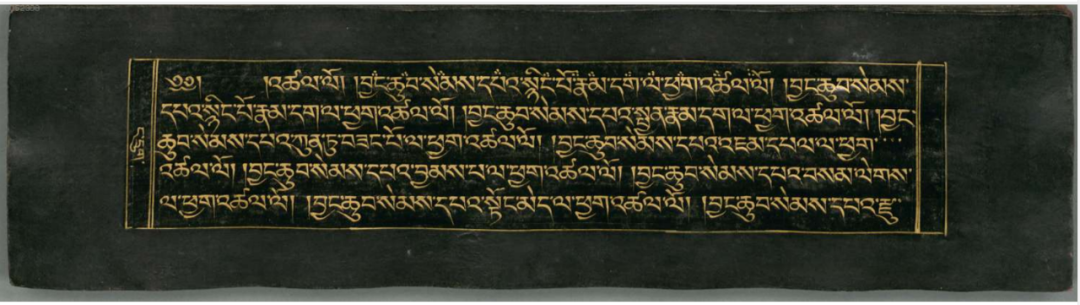 ༄༅། །འཚལ་ལོ། །བྱང་ཆུབ་སེམས་དཔའ་སྙིང་པོ་རྣམ་དག་ལ་ཕྱག་འཚལ་ལོ། །བྱང་ཆུབ་སེམས་
དཔའ་སྙིང་པོ་རྣམ་དག་ལ་ཕྱག་འཚལ་ལོ། །བྱང་ཆུབ་སེམས་དཔའ་སྤྱན་རྣམ་དག་ལ་ཕྱག་འཚལ་ལོ། །བྱང་
ཆུབ་སེམས་དཔའ་ཀུན་ཏུ་བཟང་པོ་ལ་ཕྱག་འཚལ་ལོ། །བྱང་ཆུབ་སེམས་དཔའ་འཇམ་དཔལ་ལ་ཕྱག་
འཚལ་ལོ། །བྱང་ཆུབ་སེམས་དཔའ་བྱམས་པ་ལ་ཕྱག་འཚལ་ལོ། །བྱང་ཆུབ་སེམས་དཔའ་བསམ་ལེགས་
ལ་ཕྱག་འཚལ་ལོ། །བྱང་ཆུབ་སེམས་དཔའ་སྟོང་མེད་ལ་ཕྱག་འཚལ་ལོ། །བྱང་ཆུབ་སེམས་དཔའ་ཛུ་